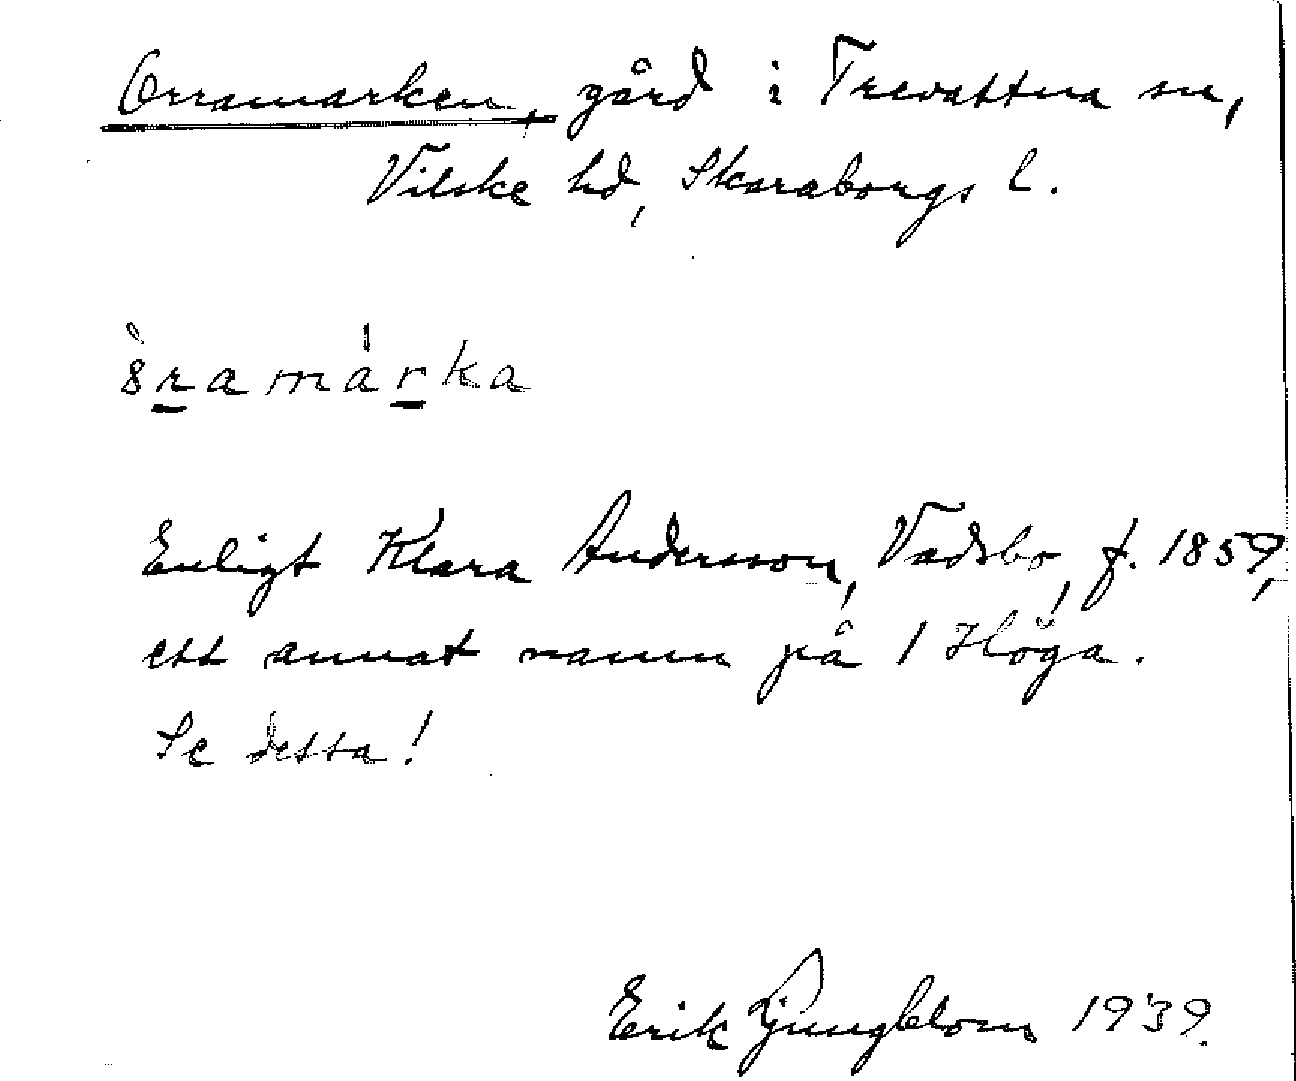 Orramarken, gård i Trevattna sn,
Vilske hd, Skaraborgs l.
Enligt Klara Andersson, Vadsbo, f. 1859,
ett annat namn på 1 Höga.
Se dessa!
Erik Ljungblom 1939.